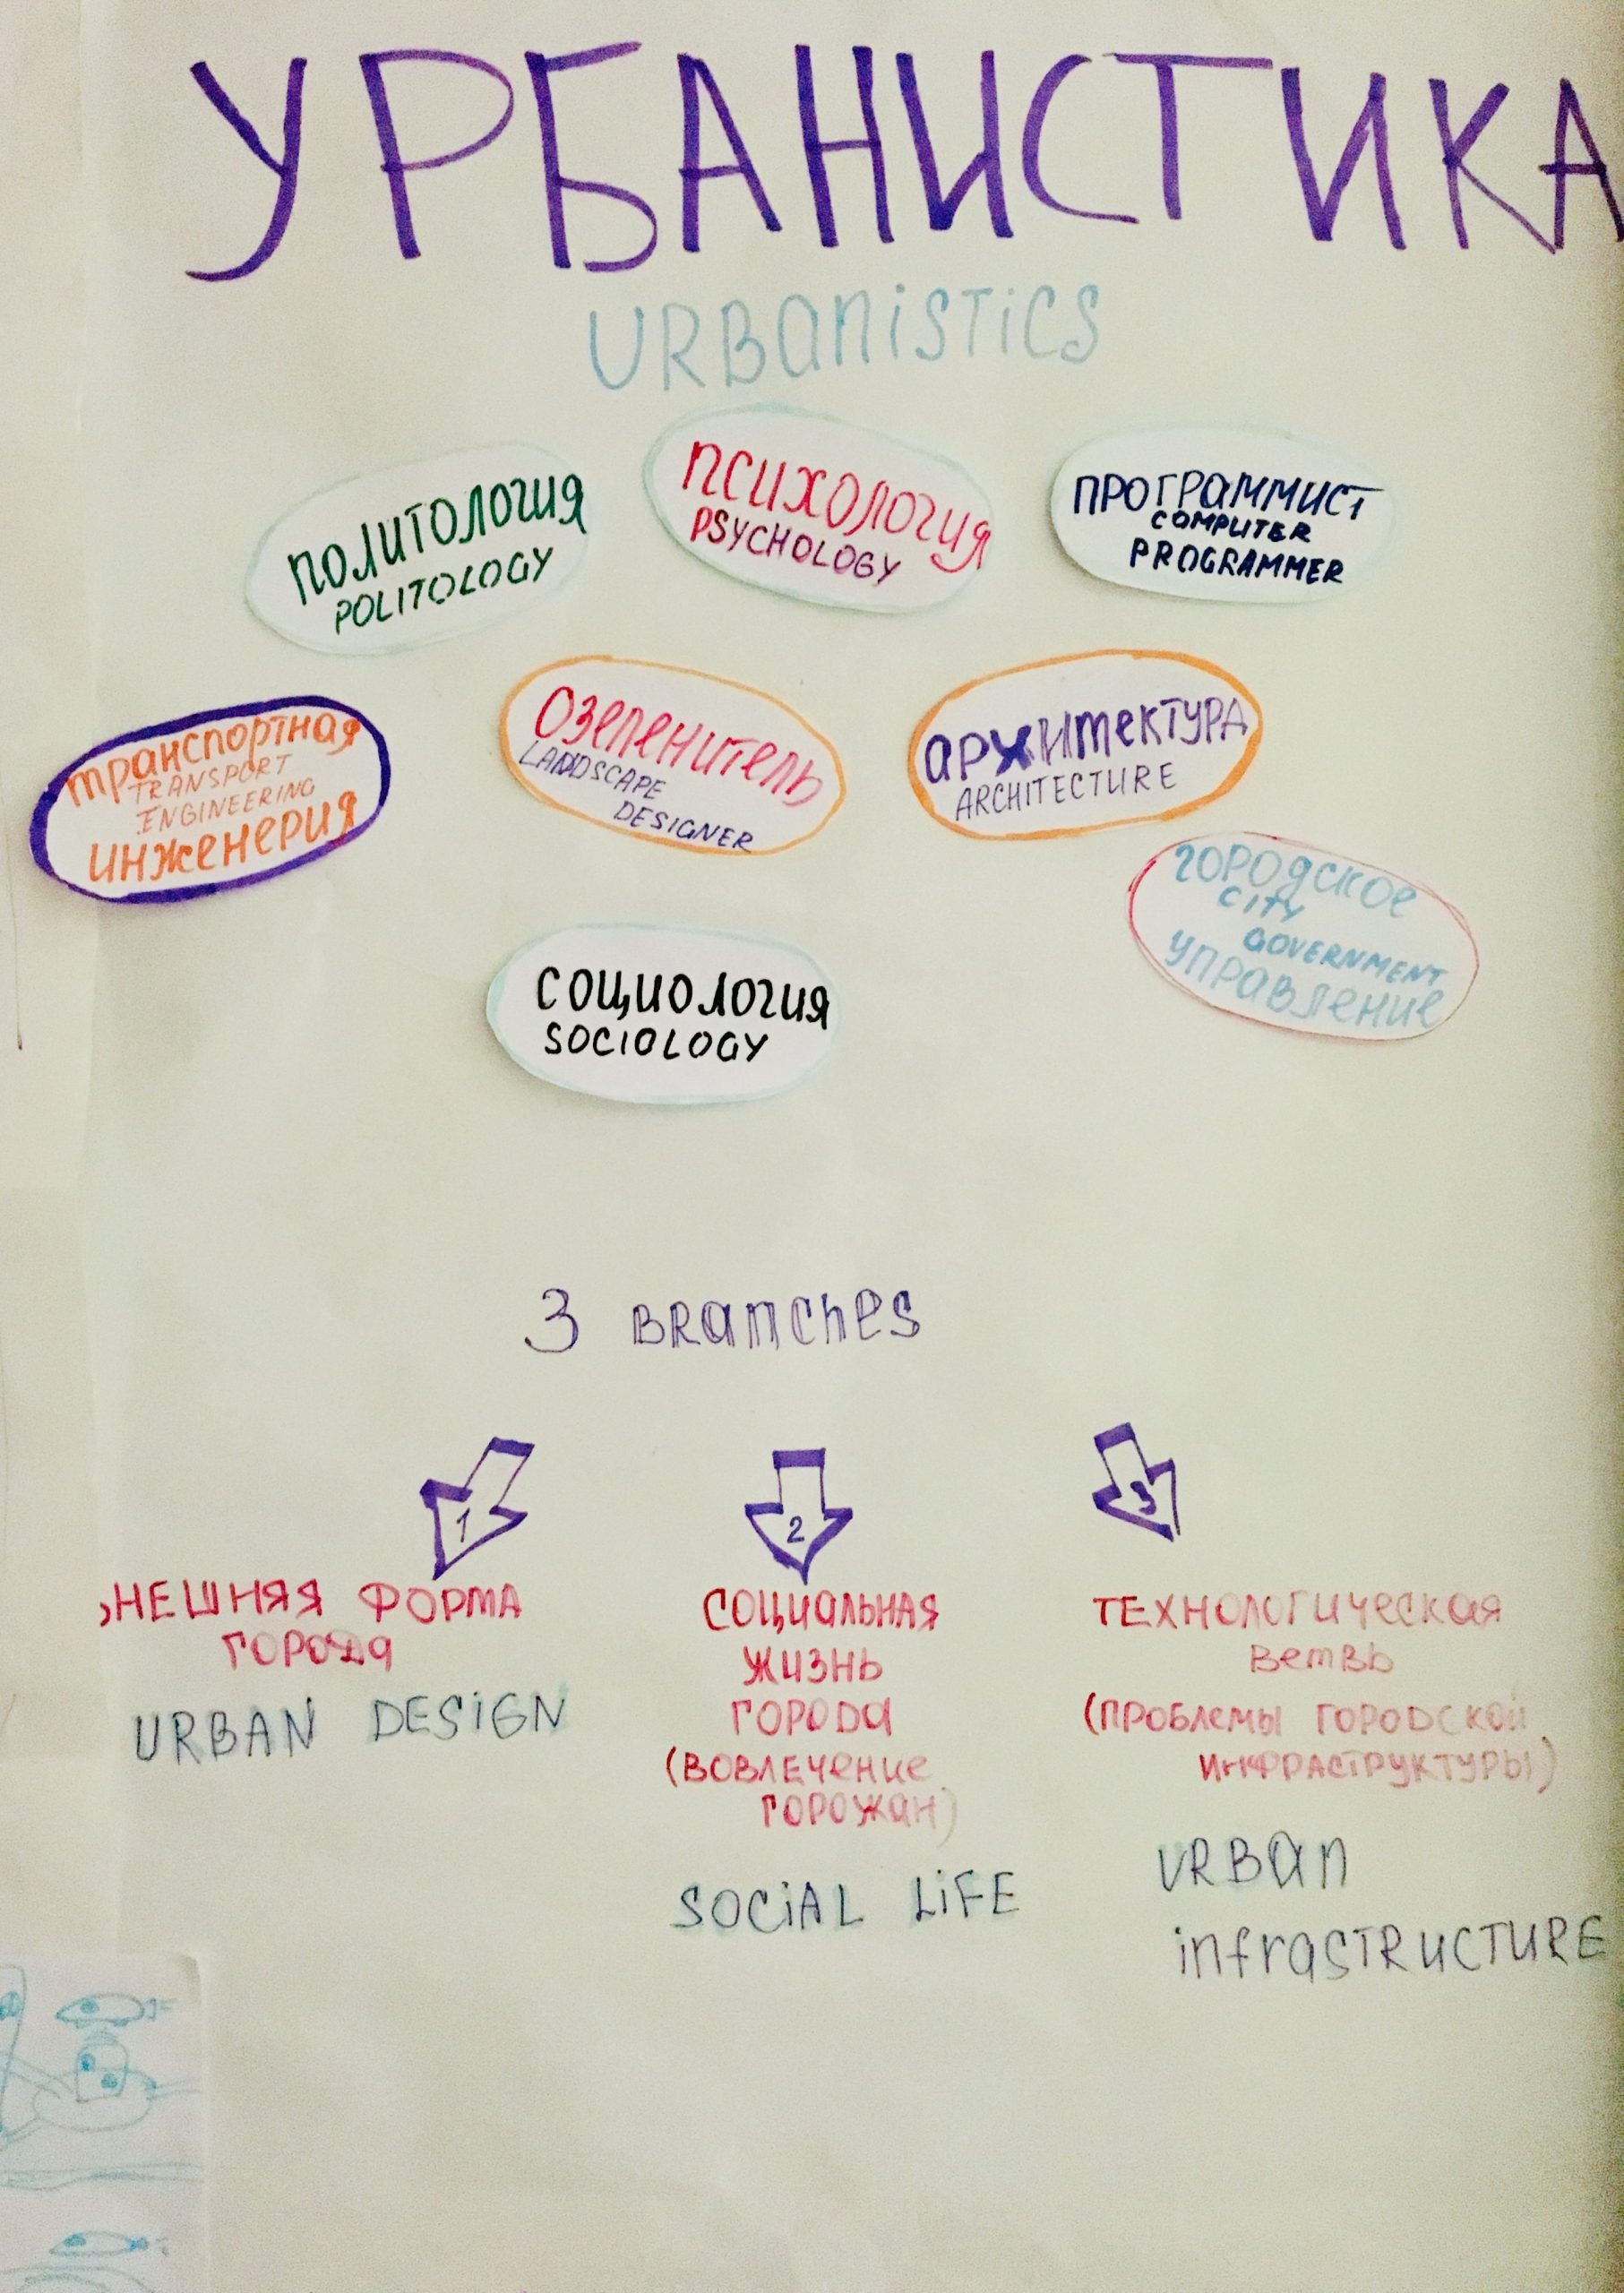 УРБАНИСТИКА
URBANISTICS
ПОЛИТОЛОГИЯ
POLITOLOGY
ПСИХОЛОГИЯ
PSYCHOLOGY
ПРОГРАММИСТ
COMPUTER
PROGRAMMER
транспортная
TRANSPORT
ENGINEERING
инженерия
Озеленитель
LANDSCAPE
DESIGNER
архитектура
ARCHITECTURE
городское
CITY
GOVERNMENT
управление
СОЦИОЛОГИЯ
SOCIOLOGY
3 BRanches
1
2
3
НЕШНЯЯ ФОРМА
ГОРОДА
URBAN DESIGN
СОЦИАЛЬНАЯ
ЖИЗНЬ
ГОРОДА
(ВОВЛЕЧЕНИЕ
ГОРОЖАН)
SOCIAL LIFE
ТЕХНОЛОГИЧЕСКАЯ
ВЕТВЬ
(ПРОБЛЕМЫ ГОРОДСКОЙ
ИНФРАСТРУКТУРЫ)
URBan
infraSTRUCTURE